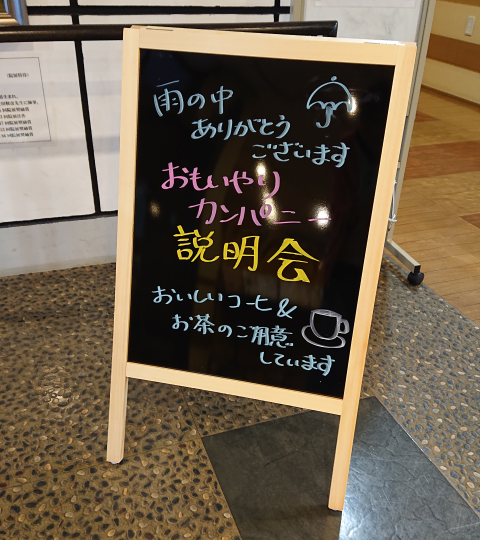 雨の中
ありがとう
ございます
おもいやり
カンパニー
説明会
おいしいコーヒ&
お茶のご用意
しています